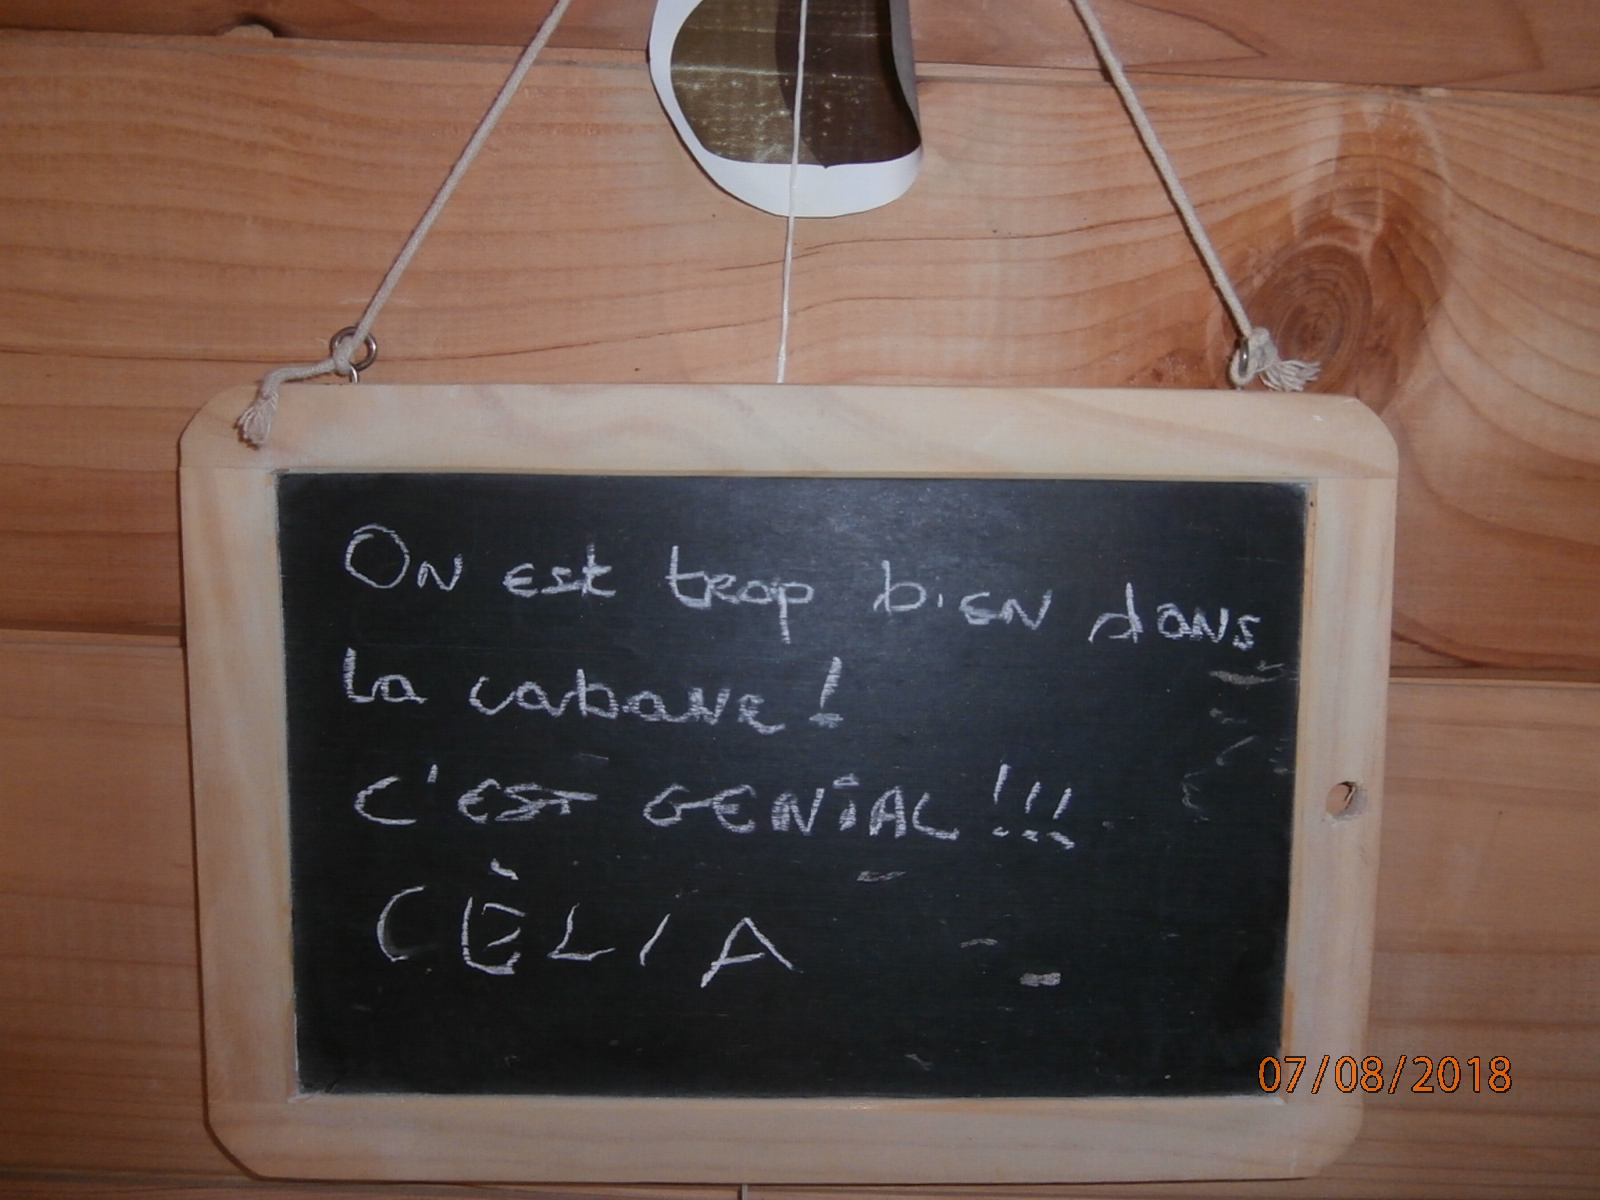 On est trop bien dans
la cabane !
C'EST GENiAL !!!
CÈLIA
07/08/2018